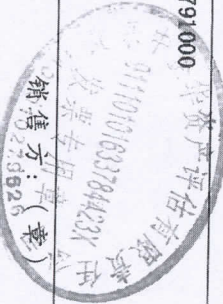 791000
华资产评估有限责任
91110101633784423X
发票专用章
销售方：(章)